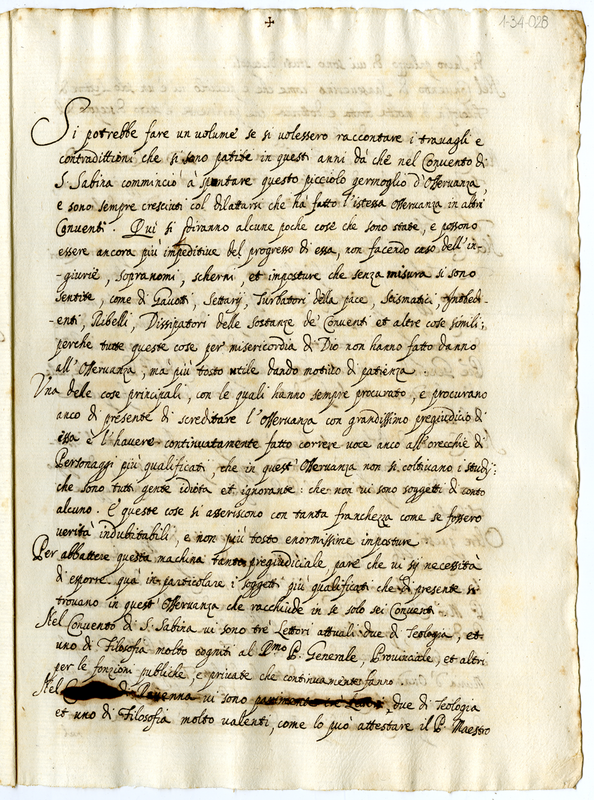 ✝
1-34-026
Si potrebbe fare un volume se si volessero raccontare i travagli e
contradittioni che si sono patite in questi anni dà che nel Convento di
S. Sabina comminciò à spuntare questo picciolo germoglio d'Osservanza,
e sono sempre cresciuti col dilatarsi che hà fatto l'istessa Osservanza in altri
Conventi. Quì si diranno alcune poche cose che sono state, e possono
essere ancora più impeditive del progresso di essa, non facendo caso dell'in-
-giurie, sopranomi, scherni, et imposture che senza misura si sono
sentite, come di Gavotti, Settarij, Turbatori della pace, Scismatici, Inobedi-
-enti, Ribelli, Dissipatori delle sostanze de' Conventi et altre cose simili;
perche tutte queste cose per misericordia di Dio non hanno fatto danno
all'Osservanza, mà più tosto utile dando motivo di patienza.
Una delle cose principali, con le quali hanno sempre procurato, e procurano
anco di presente di screditare l'Osservanza con grandissimo pregiudicio di
essa è l'havere continuatamente fatto correre voce anco all'orecchie di
Personaggi più qualificati, che in quest'Osservanza non si coltivano i studij;
che sono tutti gente idiota et ignorante: che non vi sono soggetti di conto
alcuno. E queste cose si asseriscono con tanta franchezza come se fossero
verità indubitabili, e non più tosto enormissime imposture.
Per abbattere questa machina tanto pregiudiciale pare che vi sij necessità
d'esporre quà in particolare i soggetti più qualificati che di presente si
trovano in quest'Osservanza che racchiude in se solo sei Conventi.
Nel Convento di S. Sabina vi sono trè Lettori attuali due di Teologia, et
uno di Filosofia molto cogniti al Pmo P. Generale, Provinciale, et altri
per le fonzioni publiche, e private che continuamente fanno.
Nel di Ravenna vi sono due di Teologia
et uno di Filosofia molto valenti, come lo può attestare il P. Maestro